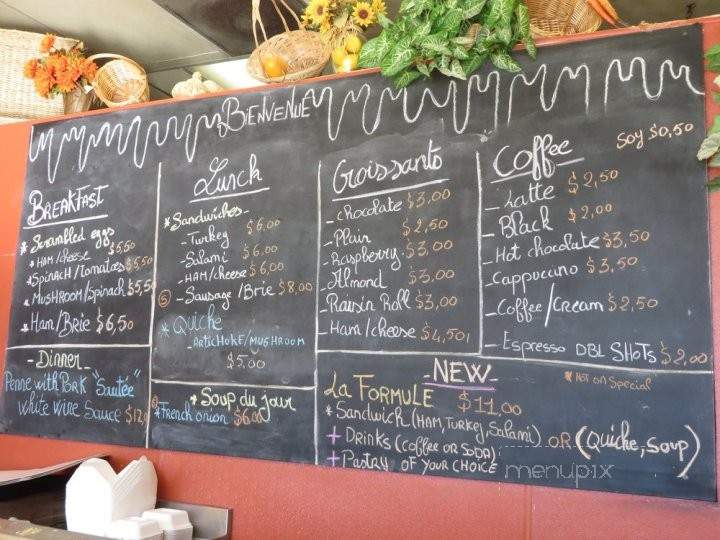 BIENVENUE
BREAKFAST
* Scrambled eggs
* HAM/cheese $5,50
* Spinach/Tomatoes $5,50
* MUSHROOM/Spinach $5,5
* Ham/Brie $6,50
- Dinner -
Penne with PORK "Sautée"
white wine Sauce $12,0
Lunch
* Sandwiches -
- Turkey $6,00
- Salami $6,00
- HAM/cheese $6,00
- Sausage/Brie $8,00
* Quiche
- ARTICHOKE/MUSHROOM
$5,00
* Soup du jour
* French onion $6,00
Croissants
- chocolate $3,00
- Plain $2,50
- Raspberry $3,00
- Almond $3,00
- Raisin Roll $3,00
- Ham/cheese $4,50
Coffee
Soy $0,50
- Latte $2,50
- Black $2,00
- Hot chocolate $3,50
- Cappucuno $3,50
- Coffee/Cream $2,50
- Espresso DBL SHOTS $2,00
- NEW -
* NOT ON Special
La FORMULE $11,00
* Sandwich (HAM, Turkey, Salami) OR (Quiche, Soup)
+ Drinks (Coffee OR SODA)
+ Pastry OF YOUR CHOICE
menupix